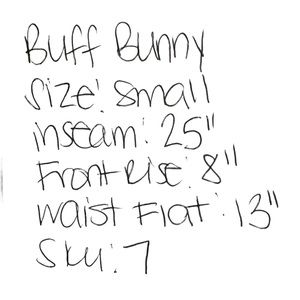 Buff Bunny
Size: Small
inseam: 25"
Front Rise: 8"
waist Flat: 13"
Sku: 7